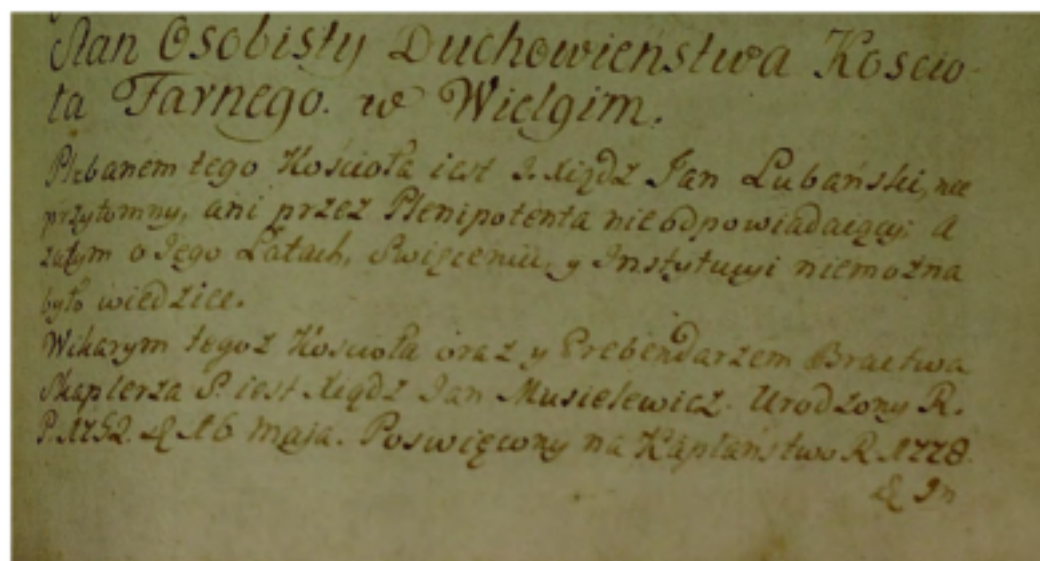 Stan Osobisty Duchowieństwa Koscio-
ła Farnego. w Wielgim.
Plebanem tego Kościoła iest J. Xiądz Jan Lubański, nie
przytomny, ani przez Plenipotenta nieodpowiadaiący; A
zatym o Jego Latach, Swięceniu, y Instytucyi niemożna
było wiedziec.
Wikarym tegoz Kościoła oraz y Prebendarzem Bractwa
Szkaplerza S. iest Xiądz Jan Musielewicz. Urodzony R.
P. 1752. d. 16 Maja. Poswięcony na Kapłaństwo R. 1778.
& In